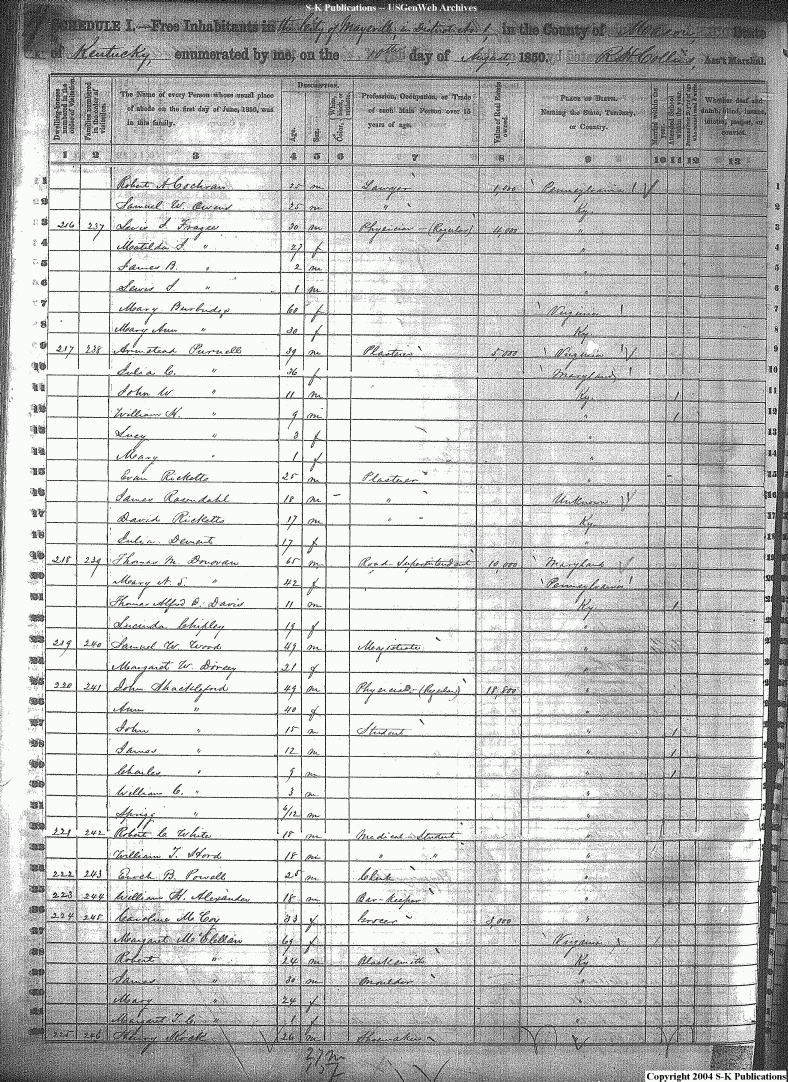 S-K Publications -- USGenWeb Archives
SCHEDULE I.—Free Inhabitants in the City of Maysville, in District No. 1, in the County of Mason, State
of Kentucky, enumerated by me, on the day of August, 1850. R H Collins, Ass't Marshal.
Dwelling-houses numbered in the order of visitation. Families numbered in the order of visitation. The Name of every Person whose usual place of abode on the first day of June, 1850, was in this family. Description. Age. Sex. Color, White, black, or mulatto. Profession, Occupation, or Trade of each Male Person over 15 years of age. Value of Real Estate owned. Place of Birth. Naming the State, Territory, or Country. Married within the year. Attended School within the year. Whether deaf and dumb, blind, insane, idiotic, pauper, or convict.
1 2 3 4 5 6 7 8 9 10 11 12 13
1 Robert A Cochran 25 m Lawyer Pennsylvania 1
2 Samuel W. Owens 25 m " Ky. 2
3 216 237 Lewis S. Frazee 30 m Physician - (Regular) 4,000 " 3
4 Matilda S. " 27 f " 4
5 James B. " 2 m " 5
6 Lewis S. " 1 m " 6
7 Mary Burbridge 60 f Virginia 7
8 Mary Ann " 30 f Ky. 8
9 217 238 Armstead Purnell 39 m Plasterer 5,000 Virginia 9
10 Julia C. " 36 f Maryland 10
11 John W. " 11 m Ky. 1 11
12 William H. " 9 m " 1 12
13 Lucy " 3 f " 13
14 Mary " 1 f " 14
15 Evan Ricketts 25 m Plasterer " 15
16 James Rosendahl 18 m " Unknown 16
17 David Ricketts 17 m " Ky. 17
18 Julia 17 f " 18
19 218 239 Thomas M. Donovan 65 m Road Superintendent 10,000 Maryland 19
20 Mary N. S. " 42 f Pennsylvania 20
21 Thomas Alfred B. Davis 11 m Ky 1 21
22 Lucinda Chipley 19 f " 22
23 219 240 Samuel W. Wood 49 m Magistrate " 23
24 Margaret W. Dorsey 21 f " 24
25 220 241 John Shackleford 49 m Physician - (Regular) 18,800 " 25
26 Ann " 40 f " 26
27 John " 15 m Student " 1 27
28 James " 12 m " 1 28
29 Charles " 9 m " 1 29
30 William C. " 3 m " 30
31 Sprigg " 6/12 m " 31
32 221 242 Robert C. White 18 m Medical Student " 32
33 William T. Hord 18 m " " " 33
34 222 243 B. Powell 25 m Clerk " 34
35 223 244 William H. Alexander 18 m Bar-keeper " 35
36 224 245 Caroline McCoy 33 f Grocer 3,000 " 36
37 Margaret McClellan 69 f Virginia 37
38 Robert " 24 m Blacksmith Ky 38
39 James " 30 m Moulder " 39
40 Mary " 24 f " 40
41 Margaret T. C. " 1 f " 41
225 246 Henry Rock 26 m Shoemaker
27 m
Copyright 2004 S-K Publications